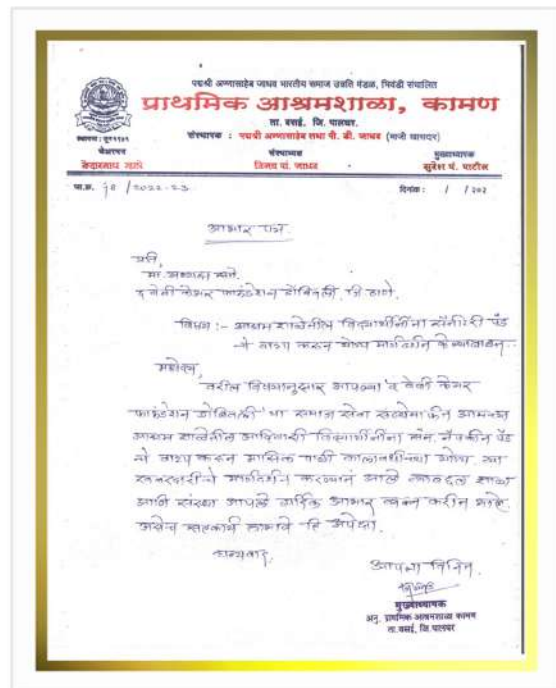 पद्मश्री अण्णासाहेब जाधव भारतीय समाज उन्नति मंडळ, भिवंडी संचालित
प्राथमिक आश्रमशाळा, कामण
ता. वसई. जि. पालघर.
संस्थापक : पद्मश्री अण्णासाहेब तथा पी. डी. जाधव (माजी खासदार)
चेअरमन
संस्थाध्यक्ष
विजय पां. जाधव
मुख्याध्यापक
सुरेश पं. पाटील
जा.क्र. /2022-23
दिनांक : / / 202
आभार पत्र
प्रति,
मा.
द वेली केअर फाउंडेशन डोंबिवली, जि. ठाणे.
विषय :- आश्रम शाळेतील विद्यार्थीनींना सॅनिटरी पॅड
चे वाटप करून योग्य मार्गदर्शन केल्याबाबत.
महोदय,
वरील विषयानुसार आपल्या 'द वेली केअर
फाउंडेशन डोंबिवली' या समाज सेवा संस्थेमार्फत आमच्या
आश्रम शाळेतील आदिवासी विद्यार्थीनींना पॅड
चे वाटप करून मासिक पाळी योग्य त्या
मार्गदर्शन करण्यात आले त्याबद्दल शाळा
आणि संस्था आपले हार्दिक आभार व्यक्त करीत आहे.
असेच सहकार्य लाभावे हि अपेक्षा.
धन्यवाद.
आपला
मुख्याध्यापक
अनु. प्राथमिक आश्रमशाळा कामण
ता. वसई, जि. पालघर